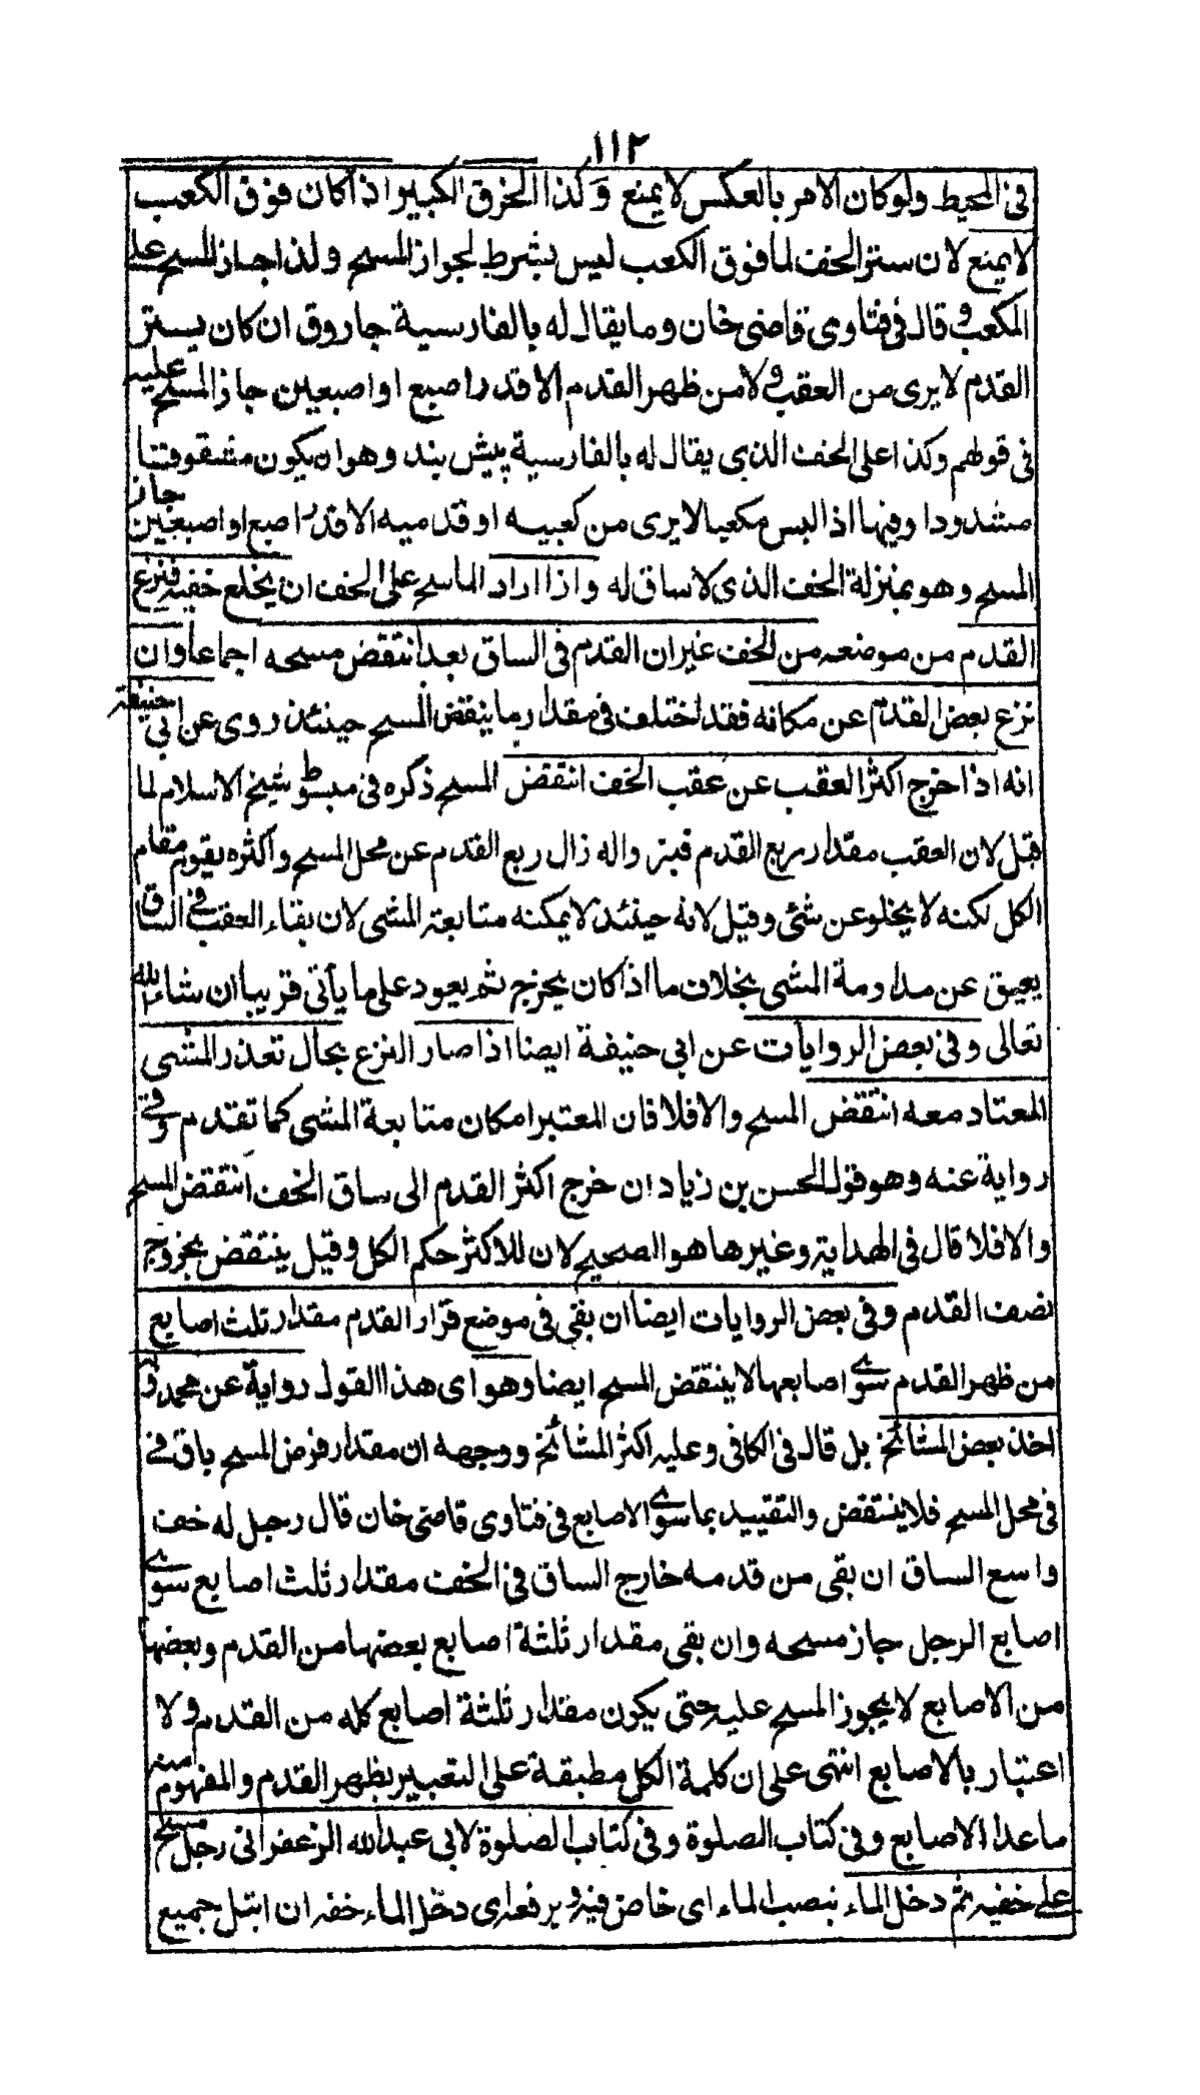 ١١٢
فى المحيط ولو كان الامر بالعكس لا يمنع وكذا الخرق الكبير اذا كان فوق الكعب
لا يمنع لان ستر الخف لما فوق الكعب ليس بشرط لجواز المسح ولذا جاز المسح على
المكعب وقال فى فتاوى قاضى خان وما يقال له بالفارسية جاروق ان كان يستر
القدم لا يرى من العقب ولا من ظهر القدم الا قدر اصبع او اصبعين جاز المسح عليه
فى قولهم وكذا على الخف الذى يقال له بالفارسية پيش بند وهو ان يكون مشقوقتا
مشدودا وفيها اذا لبس مكعبا لا يرى من كعبيه او قدميه الا قدر اصبع او اصبعين جاز
المسح وهو بمنزلة الخف الذى لا ساق له واذا اراد الماسح على الخف ان يخلع خفيه فنزع
القدم من موضعه من الخف غير ان القدم فى الساق بعد انتقض مسحه اجماعا وان
نزع بعض القدم عن مكانه فقد اختلف فى مقدار ما ينقض المسح حينئذ روى عن ابى حنيفة
انه اذا خرج اكثر العقب عن عقب الخف انتقض المسح ذكره فى مبسوط شيخ الاسلام لما
قيل لان العقب مقدار ربع القدم فبزواله زال ربع القدم عن محل المسح واكثره يقوم مقام
الكل لكنه لا يخلو عن شئ وقيل لانه حينئذ لا يمكنه متابعة المشى لان بقاء العقب فى الساق
يعيق عن مداومة المشى بخلاف ما اذا كان يخرج ثم يعود على ما يأتى قريبا ان شاء الله
تعالى وفى بعض الروايات عن ابى حنيفة ايضا اذا صار النزع بحال تعذر المشى
المعتاد معه انتقض المسح والا فلا فان المعتبر امكان متابعة المشى كما تقدم وفى
رواية عنه وهو قول الحسن بن زياد ان خرج اكثر القدم الى ساق الخف انتقض المسح
والا فلا قال فى الهداية وغيرها هو الصحيح لان للاكثر حكم الكل وقيل ينتقض بخروج
نصف القدم وفى بعض الروايات ايضا ان بقى فى موضع قرار القدم مقدار ثلث اصابع
من ظهر القدم سوى اصابعها لا ينتقض المسح ايضا وهو اى هذا القول رواية عن محمد و
اخذ بعض المشائخ بل قال فى الكافى وعليه اكثر المشائخ ووجهه ان مقدار فرض المسح باق فى
فى محل المسح فلا ينتقض والتقييد بما سوى الاصابع فى فتاوى قاضى خان قال رجل له خف
واسع الساق ان بقى من قدمه خارج الساق فى الخف مقدار ثلث اصابع سوى
اصابع الرجل جاز مسحه وان بقى مقدار ثلثة اصابع بعضها من القدم وبعضها
من الاصابع لا يجوز المسح عليه حتى يكون مقدار ثلثة اصابع كله من القدم ولا
اعتبار بالاصابع انتهى على ان كلمة الكل مطبقة على التعبير بظهر القدم والمفهوم منه
ما عدا الاصابع وفى كتاب الصلوة وفى كتاب الصلوة لابى عبد الله الزعفرانى رجل مسح
على خفيه ثم دخل الماء بنصب الماء اى خاض فيه وبرفعه اى دخل الماء خفه ان ابتل جميع